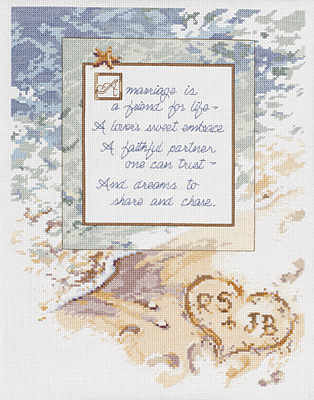 A marriage is
a friend for life -
A lover's sweet embrace
A faithful partner
one can trust -
And dreams to
share and chase.
RS
+ JB